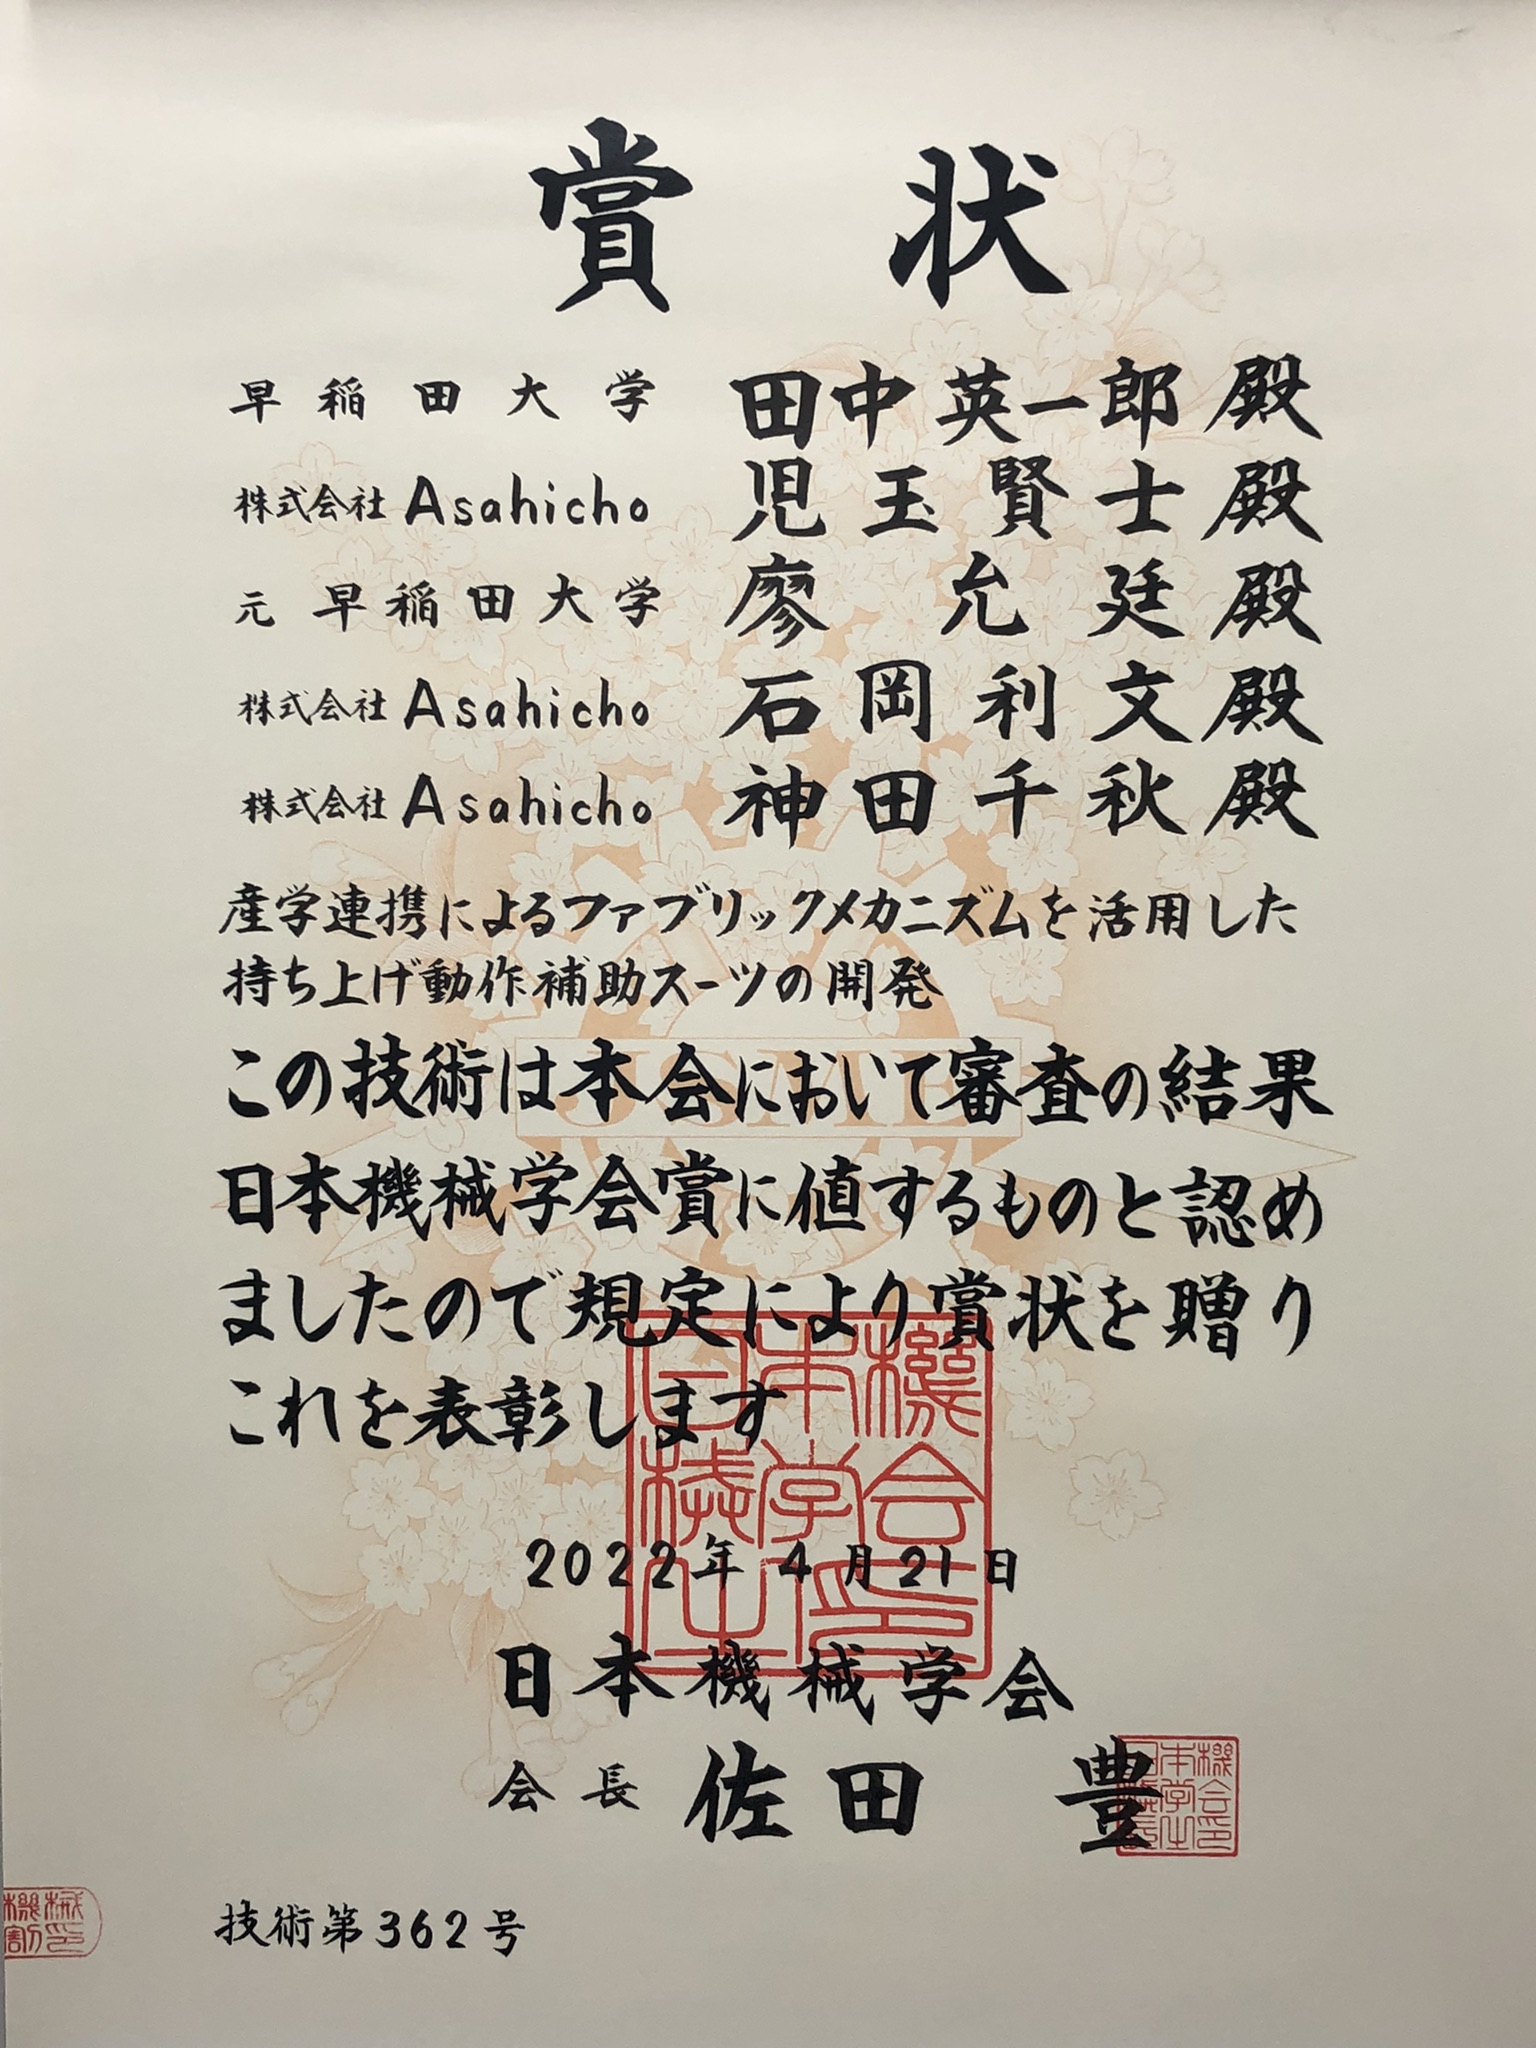 賞状
早稲田大学 田中英一郎殿
株式会社Asahicho 児玉賢士殿
元早稲田大学 廖允廷殿
株式会社Asahicho 石岡利文殿
株式会社Asahicho 神田千秋殿
産学連携によるファブリックメカニズムを活用した
持ち上げ動作補助スーツの開発
この技術は本会において審査の結果
日本機械学会賞に値するものと認め
ましたので規定により賞状を贈り
これを表彰します
2022年4月21日
日本機械学会
会長 佐田豊
技術第362号
JSME